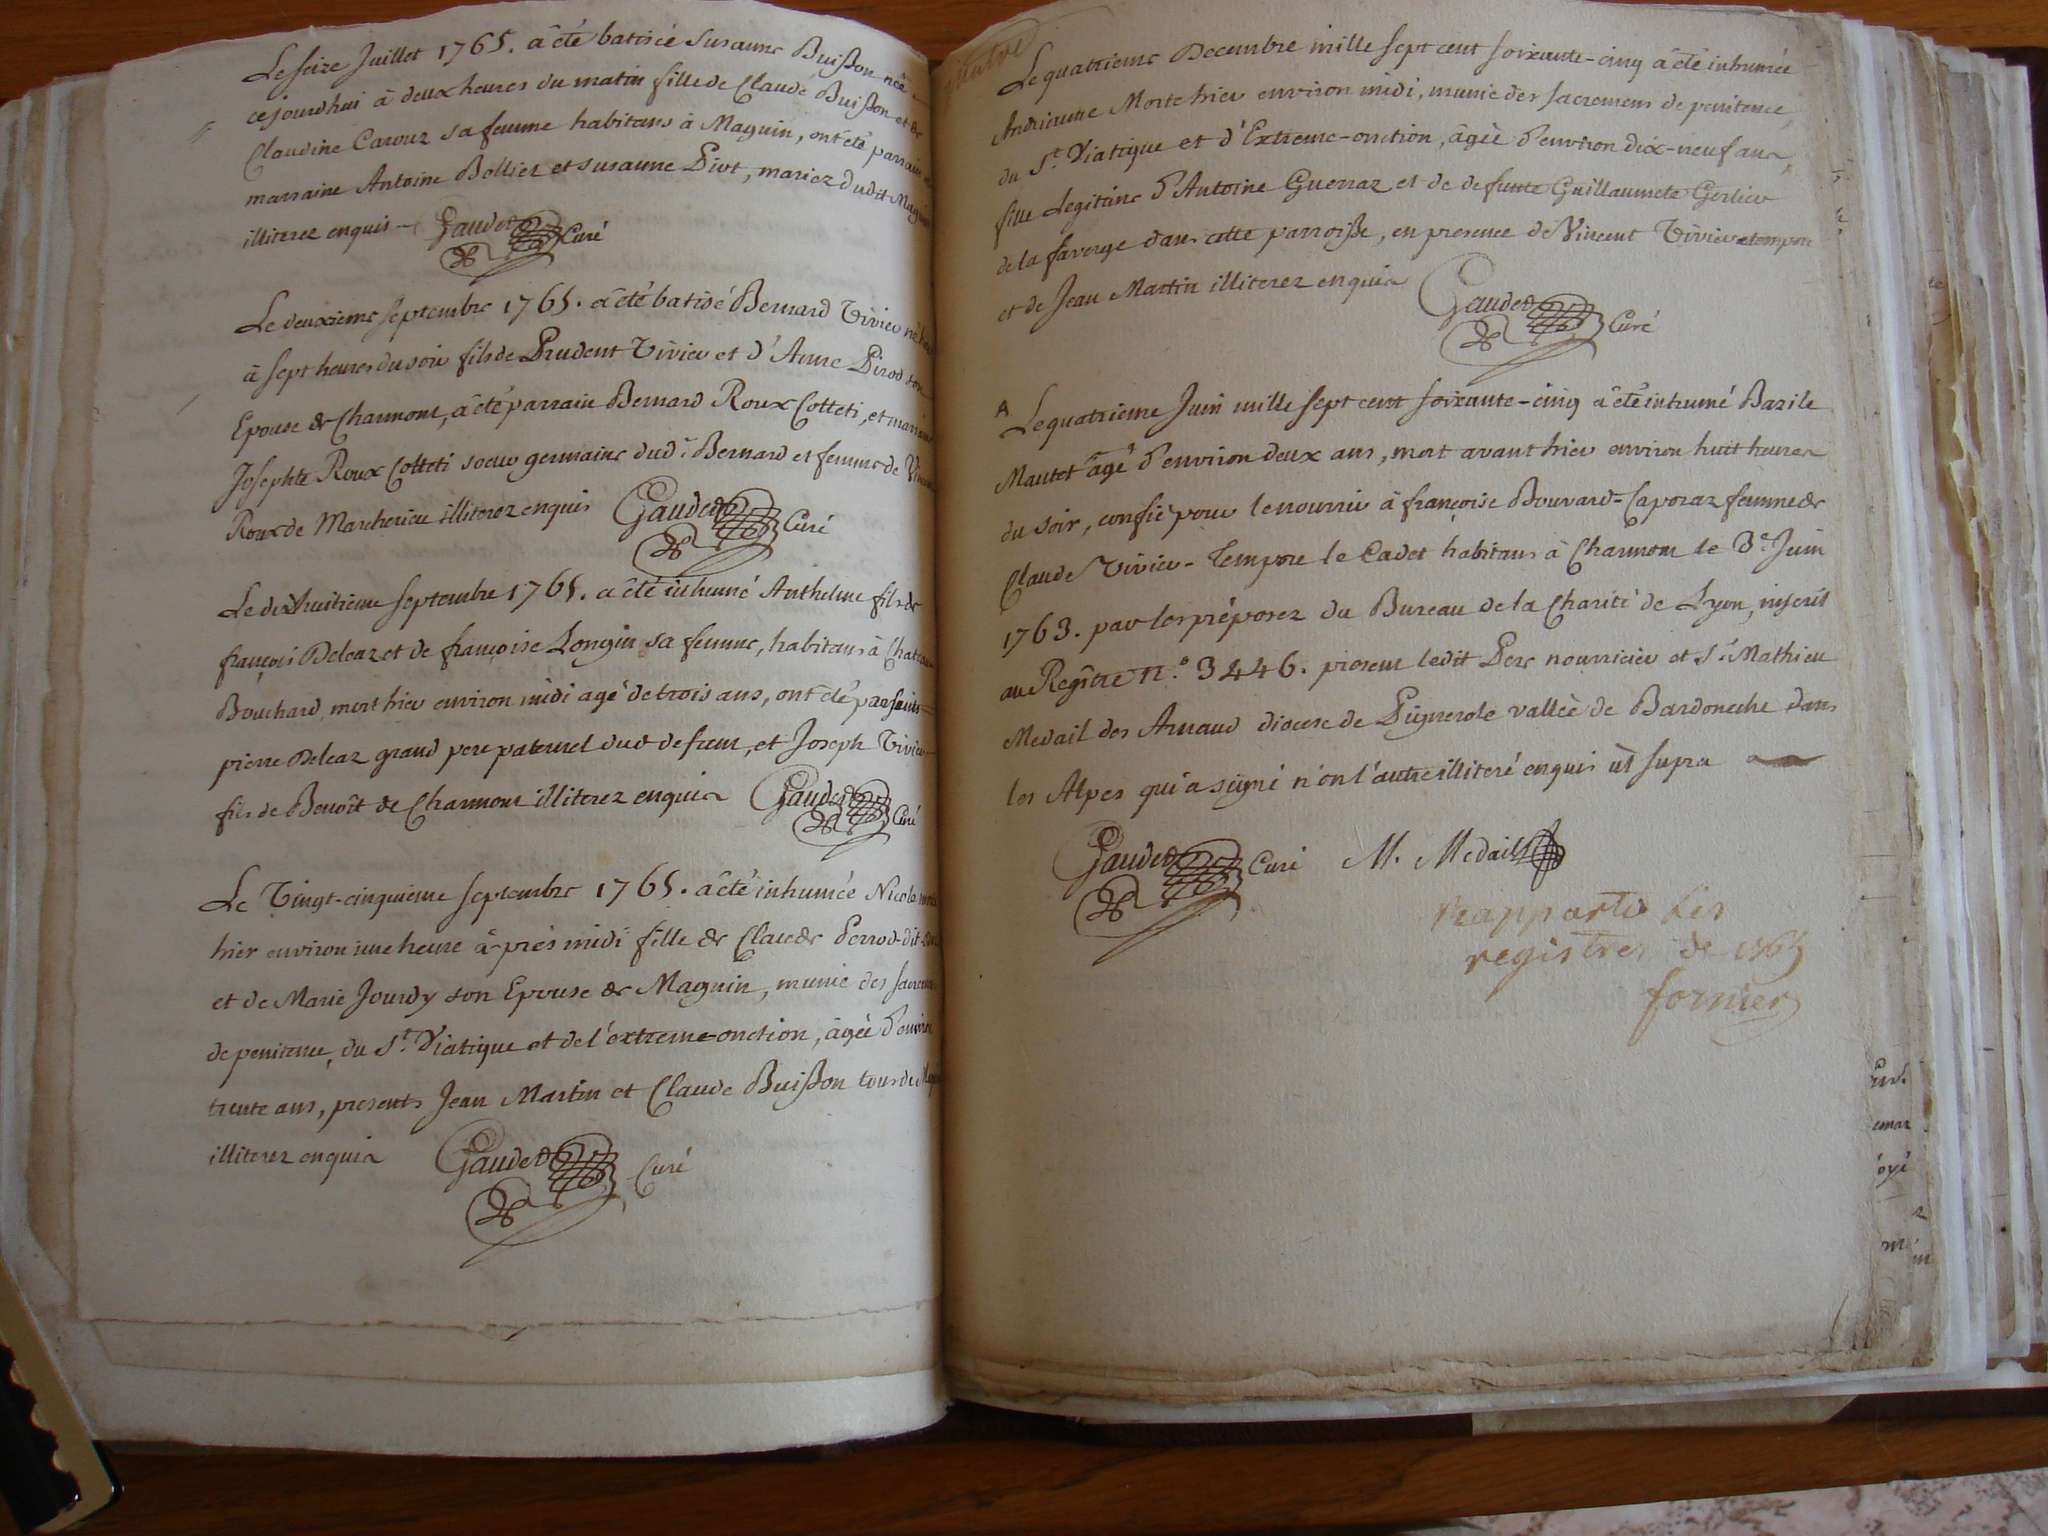 Le seize Juillet 1765. a été batisée Susanne Buisson née
cejourdhui à deux heures du matin fille de Claude Buisson et de
Claudine Carouz sa femme habitans à Magnin, ont été parrain et
marraine Antoine Bollier et Susanne Pivt, mariez dudit Magnin
illiterez enquis Gaudet Curé
Le deuxieme septembre 1765. a été batisé Bernard Vivier né hier
à sept heures du soir fils de Prudent Vivier et d'Anne Pirod son
Epouse de Charmont, a été parrain Bernard Roux Colleti, et marraine
Josephte Roux Colleti soeur germaine dud: Bernard et femme de Vincent
Roux de Marcherieu illiterez enquis Gaudet Curé
Le dixhuitieme septembre 1765. a été inhumé Anthelme fils de
françois Deleaz et de françoise Longin sa femme, habitans à Chateau
Bouchard, mort hier environ midi agé de trois ans, ont été présents
pierre Deleaz grand pere paternel dud defunt, et Joseph Vivier
fils de Benoît de Charmont illiterez enquis Gaudet Curé
Le Vingt-cinquieme septembre 1765. a été inhumée Nicole morte
hier environ une heure après midi fille de Claude Perrod dit
et de Marie Jourdy son Epouse de Magnin, munie des sacremens
de penitence, du St. Viatique et de l'extreme onction, âgée d'environ
trente ans, presents Jean Martin et Claude Buisson tous du Magnin
illiterez enquis Gaudet Curé
Le quatrieme Decembre mille sept cent soixante-cinq a été inhumée
Andrienne Morte hier environ midi, munie des sacremens de penitence,
du St. Viatique et d'Extreme-onction, âgée d'environ dix-neuf ans,
fille Legitime d'Antoine Guerraz et de defunte Guillaumete Gerlier
de la faverge dans cette parroisse, en presence de Vincent Vivier tempore
et de Jean Martin illiterez enquis Gaudet Curé
A Le quatrieme Juin mille sept cent soixante-cinq a été inhumé Bazile
Mautet âgé d'environ deux ans, mort avant hier environ huit heures
du soir, confié pour le nourrir à françoise Bouvard-Caporaz femme de
Claude Vivier-Tempore le Cadet habitans à Charmont le 3e Juin
1763. par les préposez du Bureau de la Charité de Lyon, inscrit
au Regître n.° 3446. present ledit Pere nourricier et Sr. Mathieu
Medail des Arnaud diocese de Pignerole vallée de Bardoneche dans
les Alpes qui a signé n'on l'autre illiteré enquis ut supra
Gaudet Curé M. Medail
rapporté les
registres de 1765
fornier